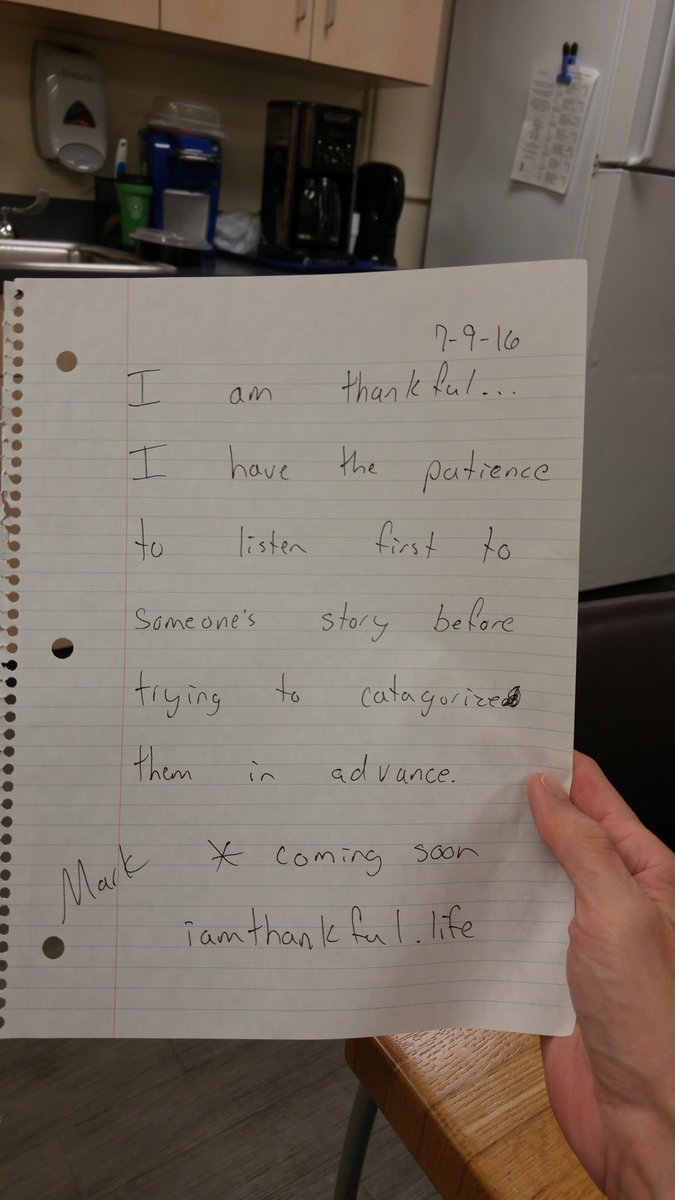 7-9-16
I am thankful...
I have the patience
to listen first to
someone's story before
trying to catagorize
them in advance.
Mark * coming soon
iamthankful.life